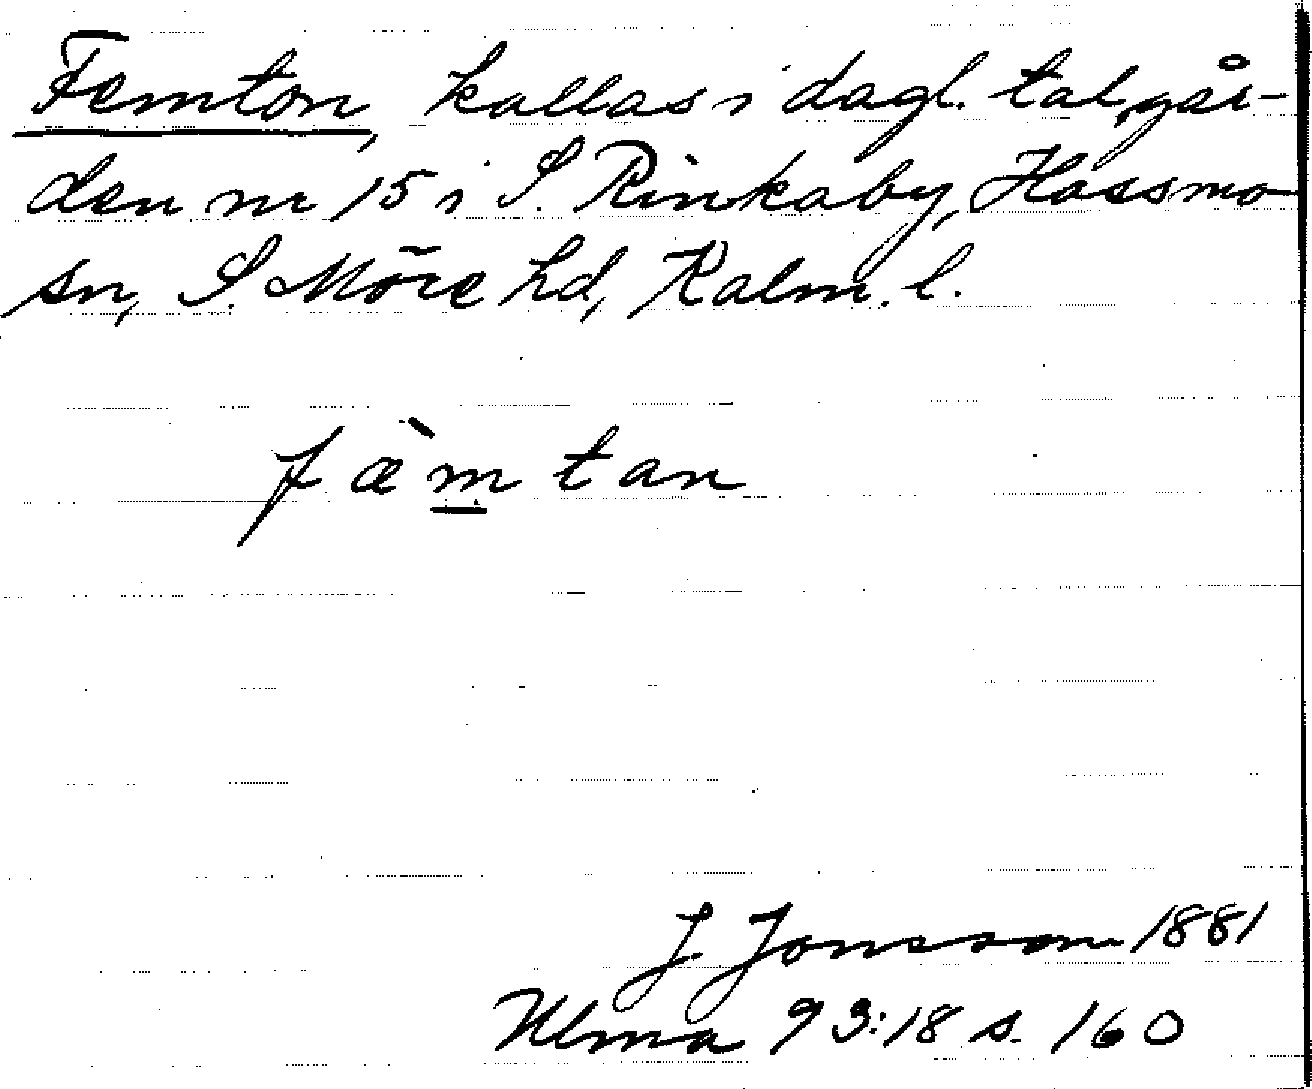 Femton, kallas i dagl. tal, går-
den nr 15 i S. Rinkaby, Hossmo
sn, S. Möre hd, Kalm. l.
fæ̀m̲tan
J Jonsson 1881
Ulma 93:18 s. 160